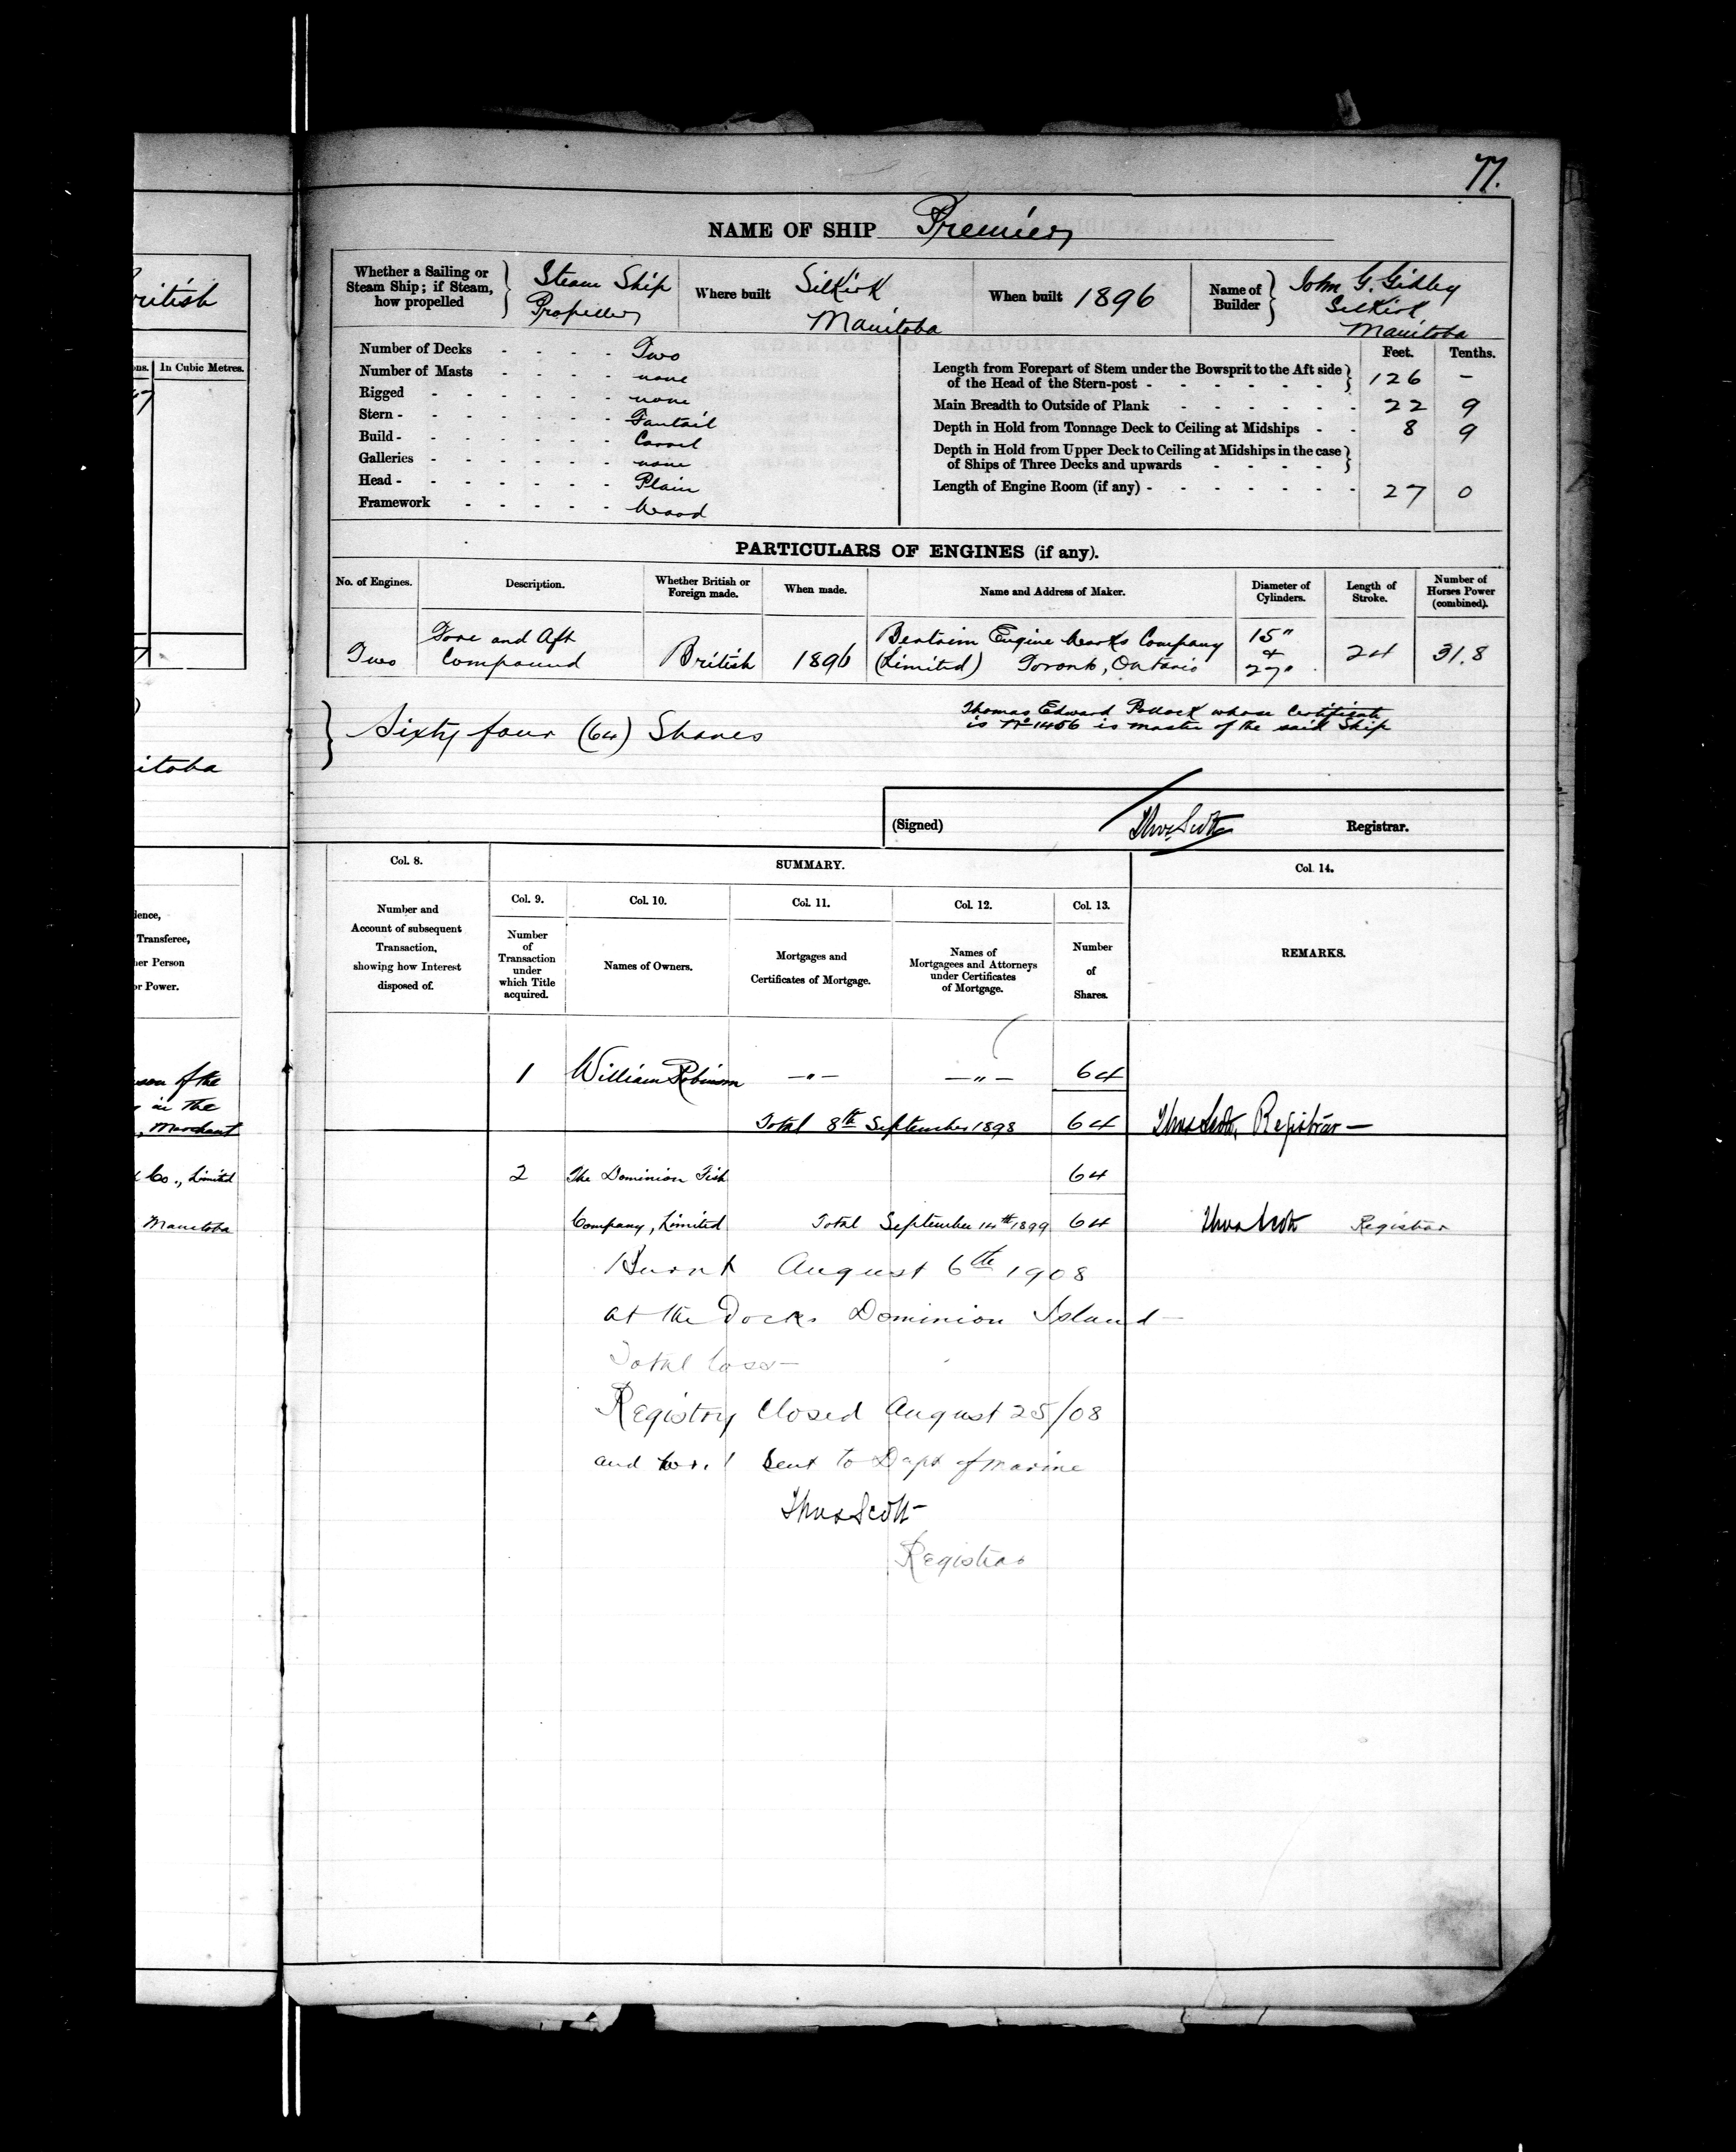 77.
NAME OF SHIP Premier
Whether a Sailing or Steam Ship; if Steam, how propelled } Steam Ship Propeller
Where built Selkirk Manitoba
When built 1896
Name of Builder } John G. Selkirk Manitoba
Number of Decks - - - - Two
Number of Masts - - - - none
Rigged - - - - - - none
Stern - - - - - - - Fantail
Build - - - - - - - Carvel
Galleries - - - - - - none
Head - - - - - - - Plain
Framework - - - - - Wood
Feet. Tenths.
Length from Forepart of Stem under the Bowsprit to the Aft side
of the Head of the Stern-post - - - - - - } 126 –
Main Breadth to Outside of Plank - - - - - - 22 9
Depth in Hold from Tonnage Deck to Ceiling at Midships - - 8 9
Depth in Hold from Upper Deck to Ceiling at Midships in the case
of Ships of Three Decks and upwards - - - - }
Length of Engine Room (if any) - - - - - - - 27 0
PARTICULARS OF ENGINES (if any).
No. of Engines. Description. Whether British or Foreign made. When made. Name and Address of Maker. Diameter of Cylinders. Length of Stroke. Number of Horses Power (combined).
Two Fore and Aft Compound British 1896 Engine Works Company (Limited) Toronto, Ontario 15" & 27" 24 31.8
} Sixty four (64) Shares
Thomas Edward Pollock whose Certificate
is No 1456 is master of the said Ship
(Signed) Thos Scott Registrar.
Col. 8. SUMMARY. Col. 14.
Number and Account of subsequent Transaction, showing how Interest disposed of.
Col. 9. Col. 10. Col. 11. Col. 12. Col. 13.
Number of Transaction under which Title acquired.
Names of Owners.
Mortgages and Certificates of Mortgage.
Names of Mortgagees and Attorneys under Certificates of Mortgage.
Number of Shares.
REMARKS.
1 William Robinson –"– –"– 64
Total 8th September 1898 64 Thos Scott, Registrar –
2 The Dominion Fish 64
Company, Limited Total September 14th 1899 64 Thos Scott Registrar
Burnt August 6th 1908
at the Docks Dominion Island –
Total loss –
Registry Closed August 25/08
and sent to Dept of Marine
Thos Scott –
Registrar
ritish
ons. In Cubic Metres.
itoba
ience,
Transferee,
her Person
or Power.
son of the
in the
, Merchant
Co., Limited
Manitoba